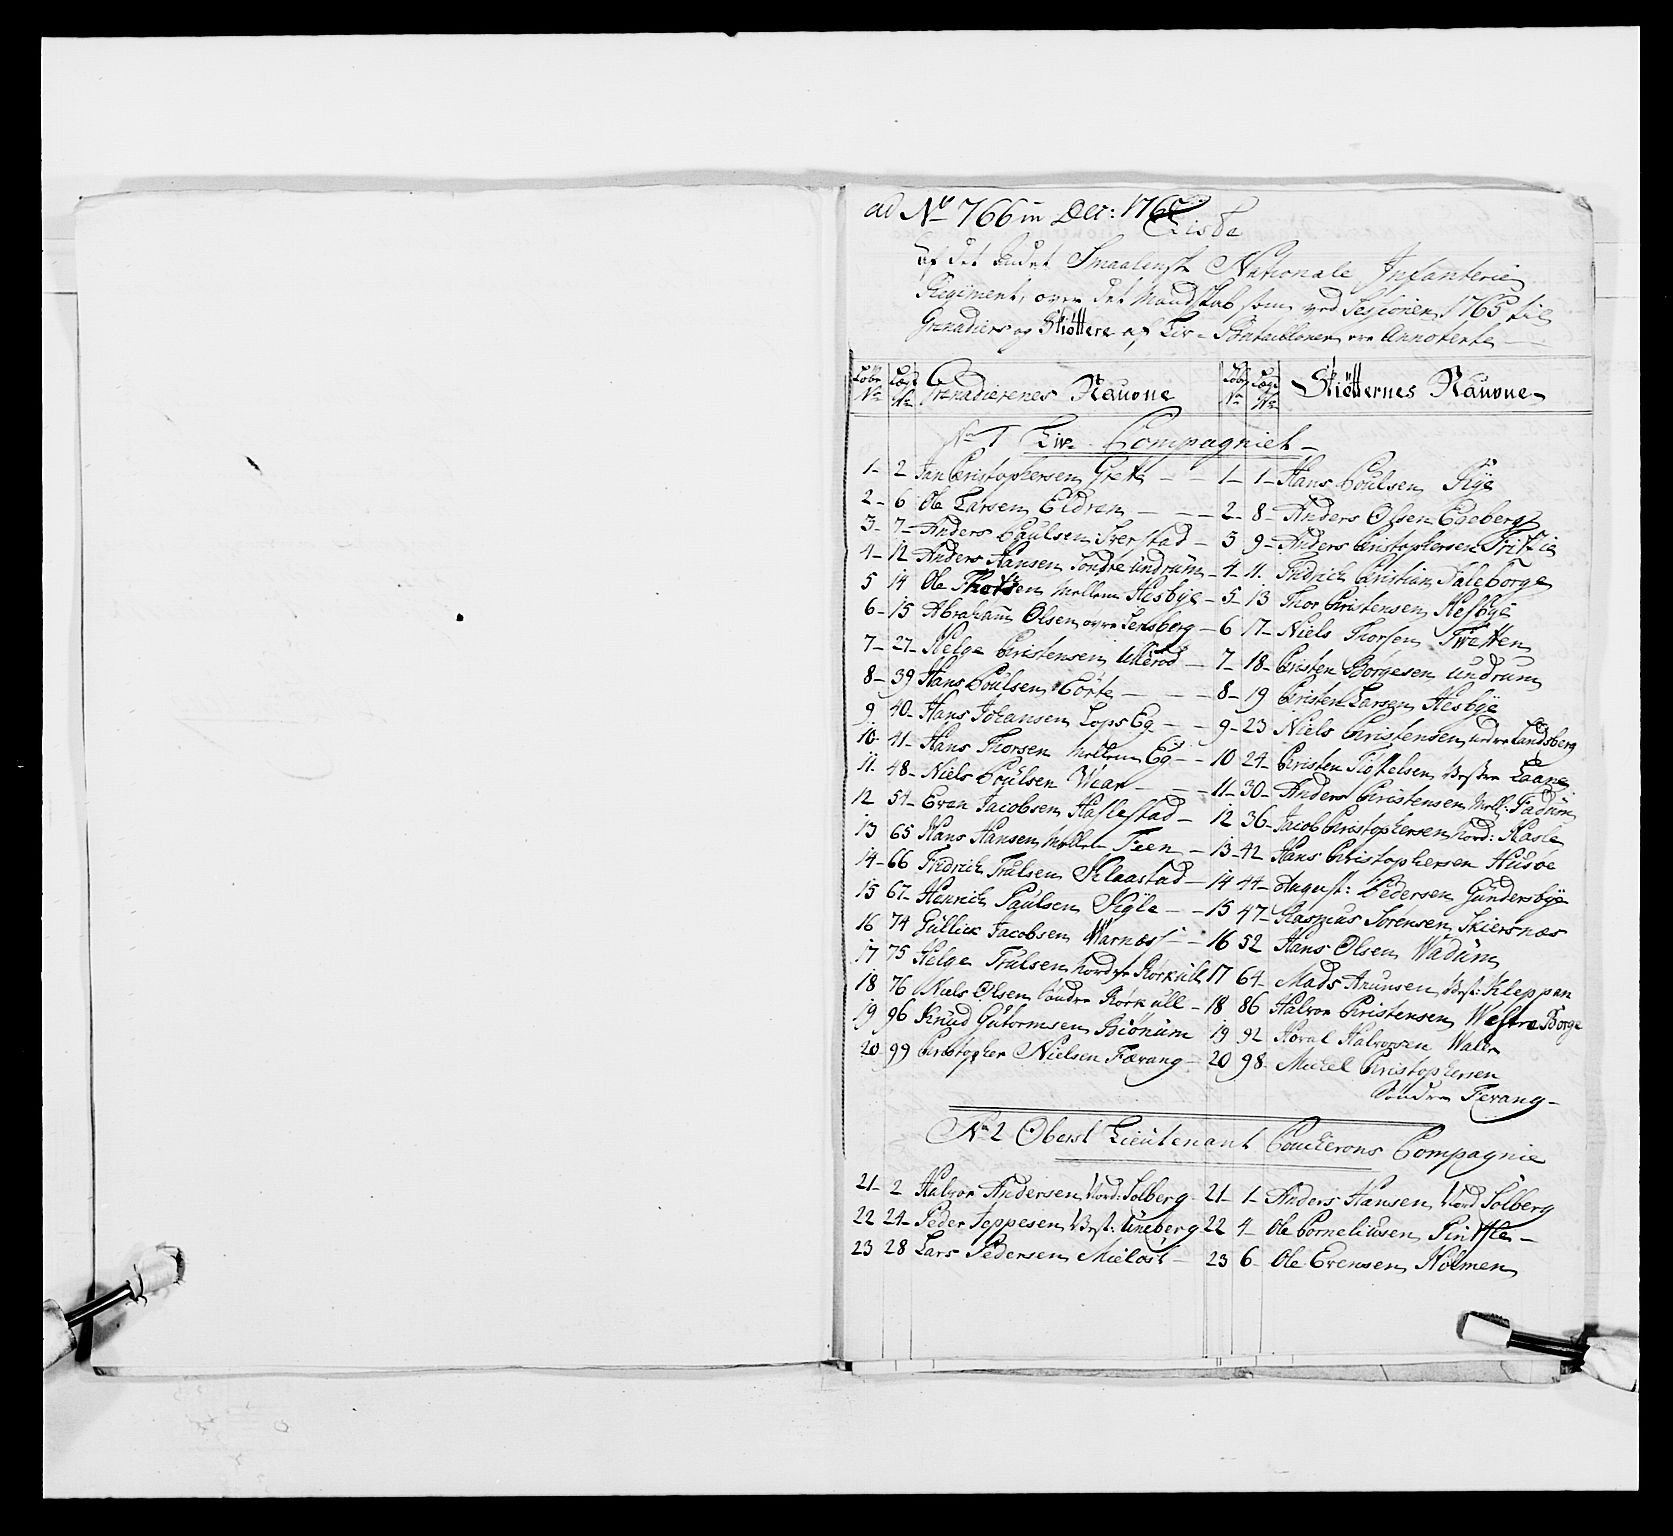 ad No 766 in Decr: 1765
Liste
af det Andet Smaalensk Nationale Infanterie
Regiment, over det Mandskab som ved Sessionen 1765 til
Grenadiers og Skiøttere af Liv-Batallionen ere Annoterte
Løbe No Lægs No Grenadierenes Nauone Løbe No Lægs No Skiötternes Nauone
No 1 Liv Compagniet
1 2 Jan Christophersen Greti 1 1 Hans Poulsen Rÿe
2 6 Ole Larsen Eidren 2 8 Anders Olsen Egeberg
3 7 Anders Paulsen Sverstad 3 9 Anders Christophersen Fritzie
4 12 Anders Hansen Søndre Undrum 4 11 Fridrich Christian Faleborge
5 14 Ole Thorsen Mellem Hesbÿe 5 13 Thor Christensen Hesbÿe
6 15 Abraham Olsen øvre Lensberg 6 17 Niels Thorsen Twetten
7 27 Helge Christensen Ullerød 7 18 Christen Borgesen Undrum
8 39 Hans Poulsen Børte 8 19 Christen Larsen Hesbÿe
9 40 Hans Johansen Lops Eg 9 23 Niels Christensen nedre Landsberg
10 41 Hans Thorsen Mellem Eg 10 24 Christen KioStelsen Westre Laane
11 48 Niels Poulsen Wear 11 30 Anders Christensen Mell: Fadum
12 54 Even Jacobsen Haslestad 12 36 Jacob Christophersen Nord: Hasle
13 65 Hans Hansen Mellem Feen 13 42 Hans Christophersen Husøe
14 66 Fridrich Trulsen Klaastad 14 44 August: Pedersen Gundersbÿe
15 67 Henrich Paulsen Kigle 15 47 Rasmus Sørensen Skiersnæs
16 74 Gullick Jacobsen Warnæss 16 52 Hans Olsen Wadum
17 75 Helge Trulsen Nordre Rørkull 17 64 Mads Anunsen West: Kleppan
18 76 Niels Olsen Søndre Rørkull 18 86 Halvor Christensen Westre Borge
19 96 Knud Gutormsen Biønum 19 92 Horal Halvorsen Waler
20 99 Christopher Nielsen Færang 20 98 Michel Christophersen
Søndre Ferang
No 2 Oberst Lieutenant Coucherons Compagnie
21 2 Halvor Andersen Nord: Solberg 21 1 Anders Hansen Nord Solberg
22 24 Peder Jeppesen West: Uneberg 22 4 Ole Corneliusen Pinsle
23 28 Lars Pedersen Mieløst 23 6 Ole Evensen Holmen